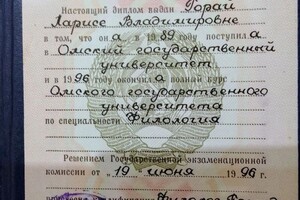 Настоящий диплом выдан Горай
Ларисе Владимировне
в том, что она в 1989 году поступила
в Омский государственный
университет
и в 1996 году окончила полный курс
Омского государственного
университета
по специальности Филология
Решением Государственной экзаменационной
комиссии от "19" июня 1996 г.